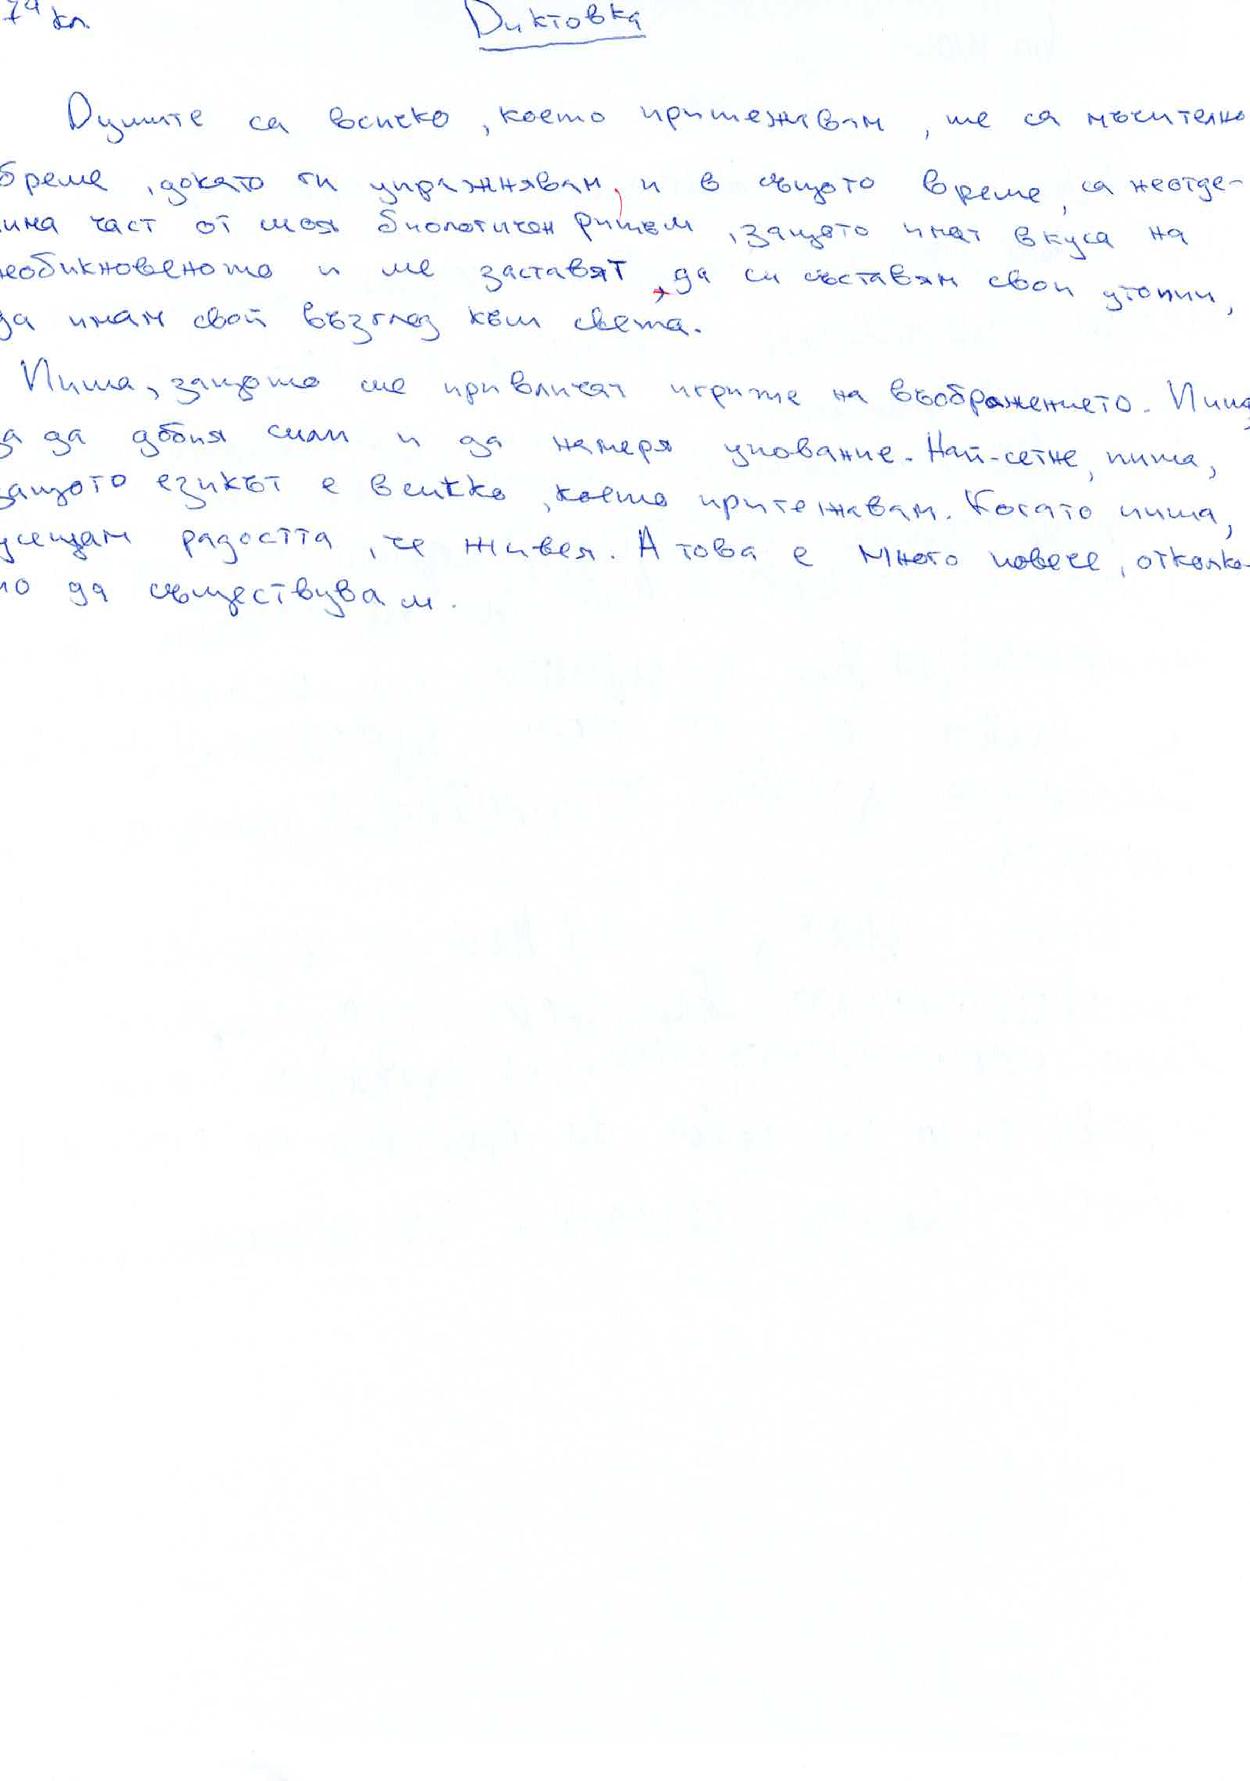 7ª кл.
Диктовка
Думите са всичко, което притежавам, те са мъчително
бреме, докато ги упражнявам, и в същото време, са неотде-
има част от моя биологичен ритъм, защото имат вкуса на
необикновеното и ме заставят, да си съставям свои утопии,
да имам свой възглед към света.
Пиша, защото ме привличат игрите на въображението. Пиша,
за да добия сили и да намеря упование. Най-сетне, пиша,
защото езикът е всичко, което притежавам. Когато пиша,
усещам радостта, че живея. А това е много повече, отколко-
то да съществувам.